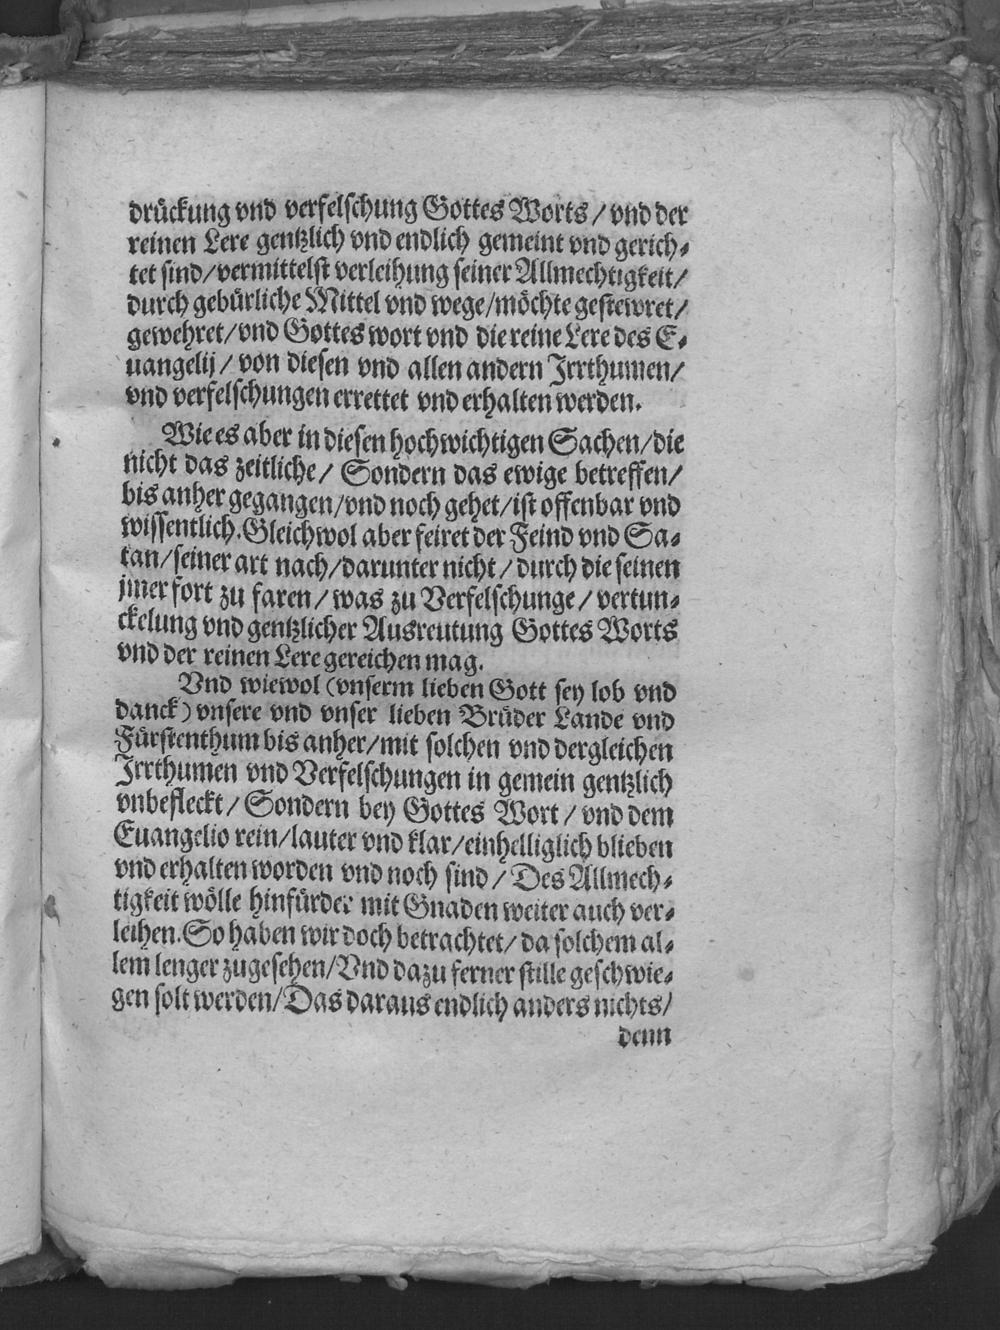 drückung vnd verfelschung Gottes Worts / vnd der
reinen Lere gentzlich vnd endlich gemeint vnd gerich⸗
tet sind/vermittelst verleihung seiner Allmechtigkeit/
durch gebürliche Mittel vnd wege/möchte gestewret/
gewehret/vnd Gottes wort vnd die reine Lere des E⸗
uangelij / von diesen vnd allen andern Irrthumen/
vnd verfelschungen errettet vnd erhalten werden.
Wie es aber in diesen hochwichtigen Sachen/die
nicht das zeitliche/ Sondern das ewige betreffen/
bis anher gegangen/vnd noch gehet/ist offenbar vnd
wissentlich.Gleichwol aber feiret der Feind vnd Sa⸗
tan/seiner art nach/darunter nicht / durch die seinen
jmer fort zu faren / was zu Verfelschunge / vertun⸗
ckelung vnd gentzlicher Ausreutung Gottes Worts
vnd der reinen Lere gereichen mag.
Vnd wiewol (vnserm lieben Gott sey lob vnd
danck) vnsere vnd vnser lieben Brüder Lande vnd
Fürstenthum bis anher/mit solchen vnd dergleichen
Irrthumen vnd Verfelschungen in gemein gentzlich
vnbefleckt / Sondern bey Gottes Wort / vnd dem
Euangelio rein/lauter vnd klar/einhelliglich blieben
vnd erhalten worden vnd noch sind / Des Allmech⸗
tigkeit wölle hinfürder mit Gnaden weiter auch ver⸗
leihen.So haben wir doch betrachtet/ da solchem al⸗
lem lenger zugesehen/Vnd dazu ferner stille geschwie⸗
gen solt werden/Das daraus endlich anders nichts/
denn